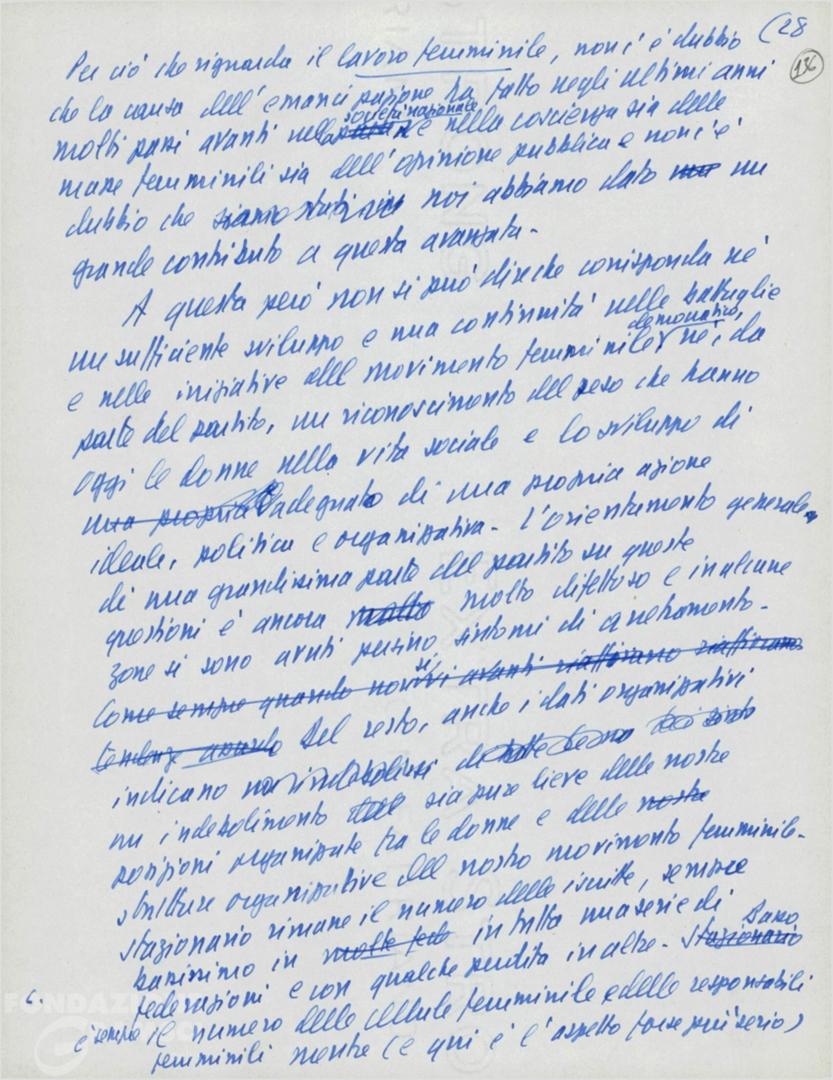 (28
136
Per ciò che riguarda il lavoro femminile, non c'è dubbio
che la causa dell'emancipazione ha fatto negli ultimi anni
molti passi avanti nella società nazionale e nella coscienza sia delle
masse femminili sia dell'opinione pubblica e non c'è
dubbio che siamo stati noi abbiamo dato un
grande contributo a questa avanzata.
A questa però non si può dire che corrisponda né
un sufficiente sviluppo e una continuità nelle battaglie
e nelle iniziative del movimento femminile democratico, né, da
parte del partito, un riconoscimento del peso che hanno
oggi le donne nella vita sociale e lo sviluppo di
una propria adeguato di una propria azione
ideale, politica e organizzativa. L'orientamento generale
di una grandissima parte del partito su queste
questioni è ancora molto molto difettoso e in alcune
zone si sono avuti persino sintomi di arretramento.
Come sempre quando non si va avanti riaffiorano riaffiorano
tendenze Del resto, anche i dati organizzativi
indicano indebolirsi di
un indebolimento sia pure lieve delle nostre
posizioni organizzate tra le donne e delle nostre
strutture organizzative del nostro movimento femminile.
Stazionario rimane il numero delle iscritte, sempre
bassissimo in molte fede in tutta una serie di
federazioni e con qualche perdita in altre. Stazionario Basso
è sempre il numero delle cellule femminili e delle responsabili
femminili mentre (e qui è l'aspetto forse più serio)
FONDAZI